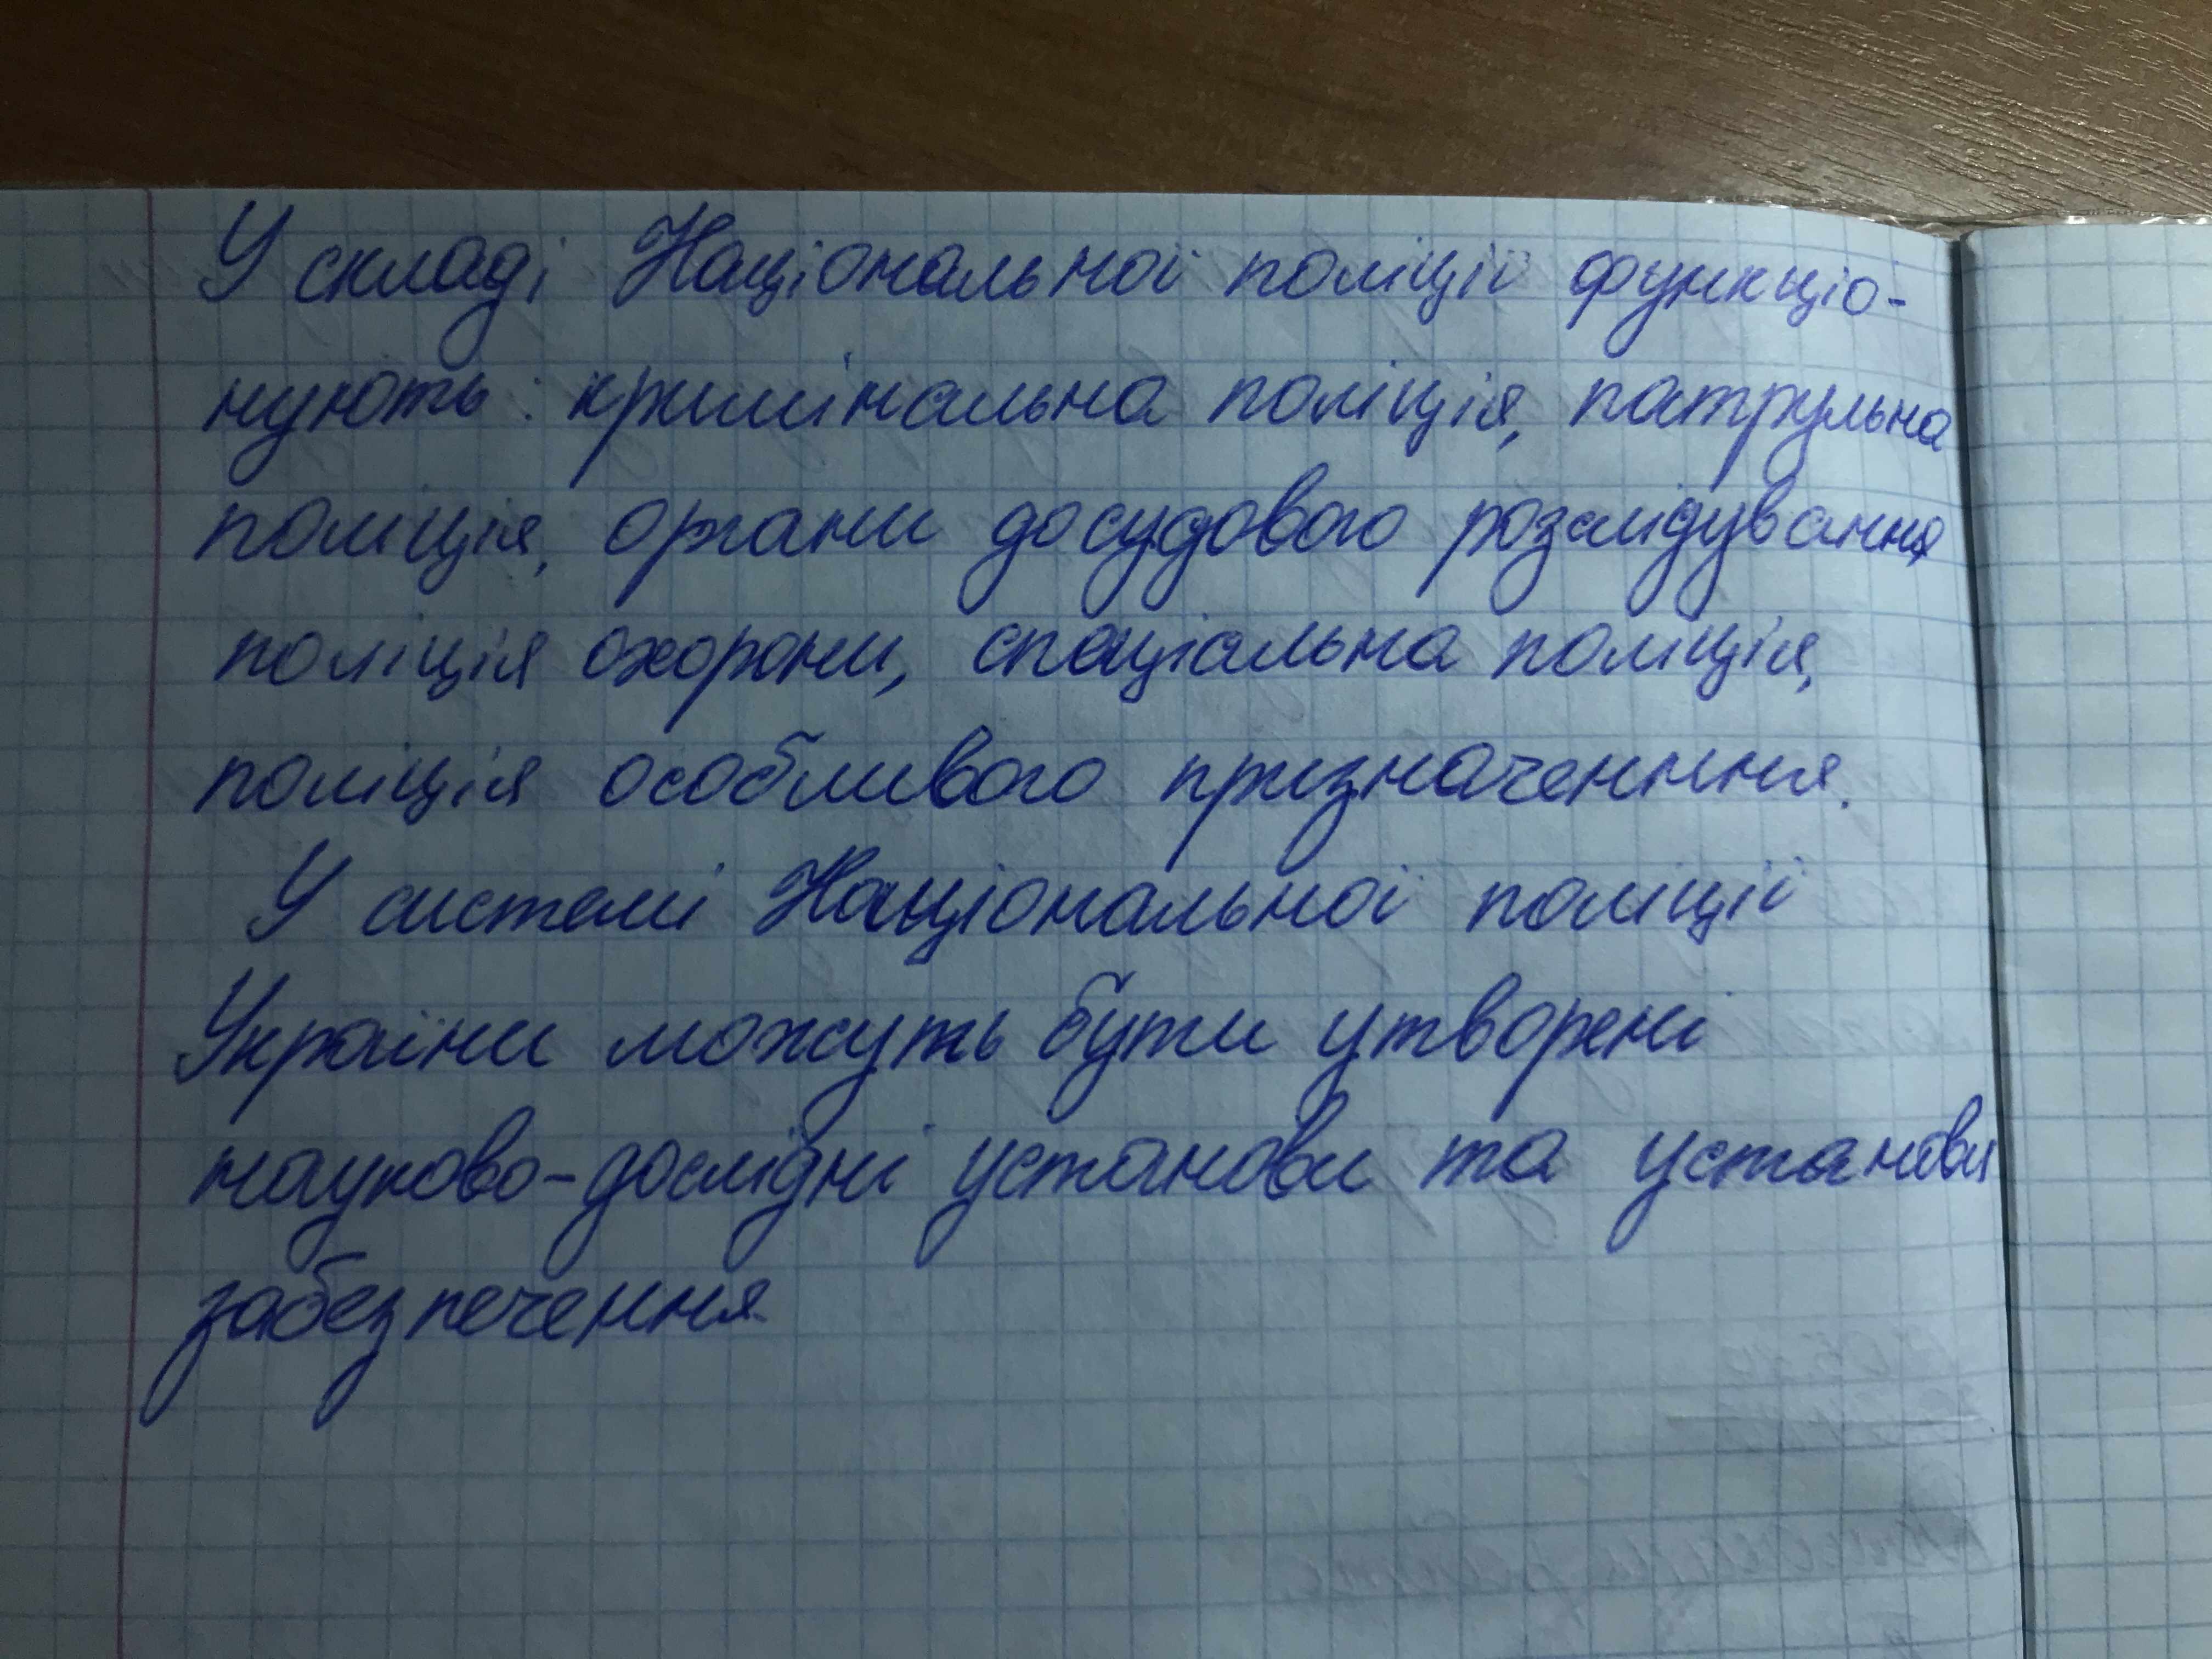 У складі Національної поліції функціо-
нують: кримінальна поліція, патрульна
поліція, органи досудового розслідування
поліція охорони, спеціальна поліція,
поліція особливого призначенння.
У системі Національної поліції
України можуть бути утворені
науково-дослідні установи та установи
забезпечення